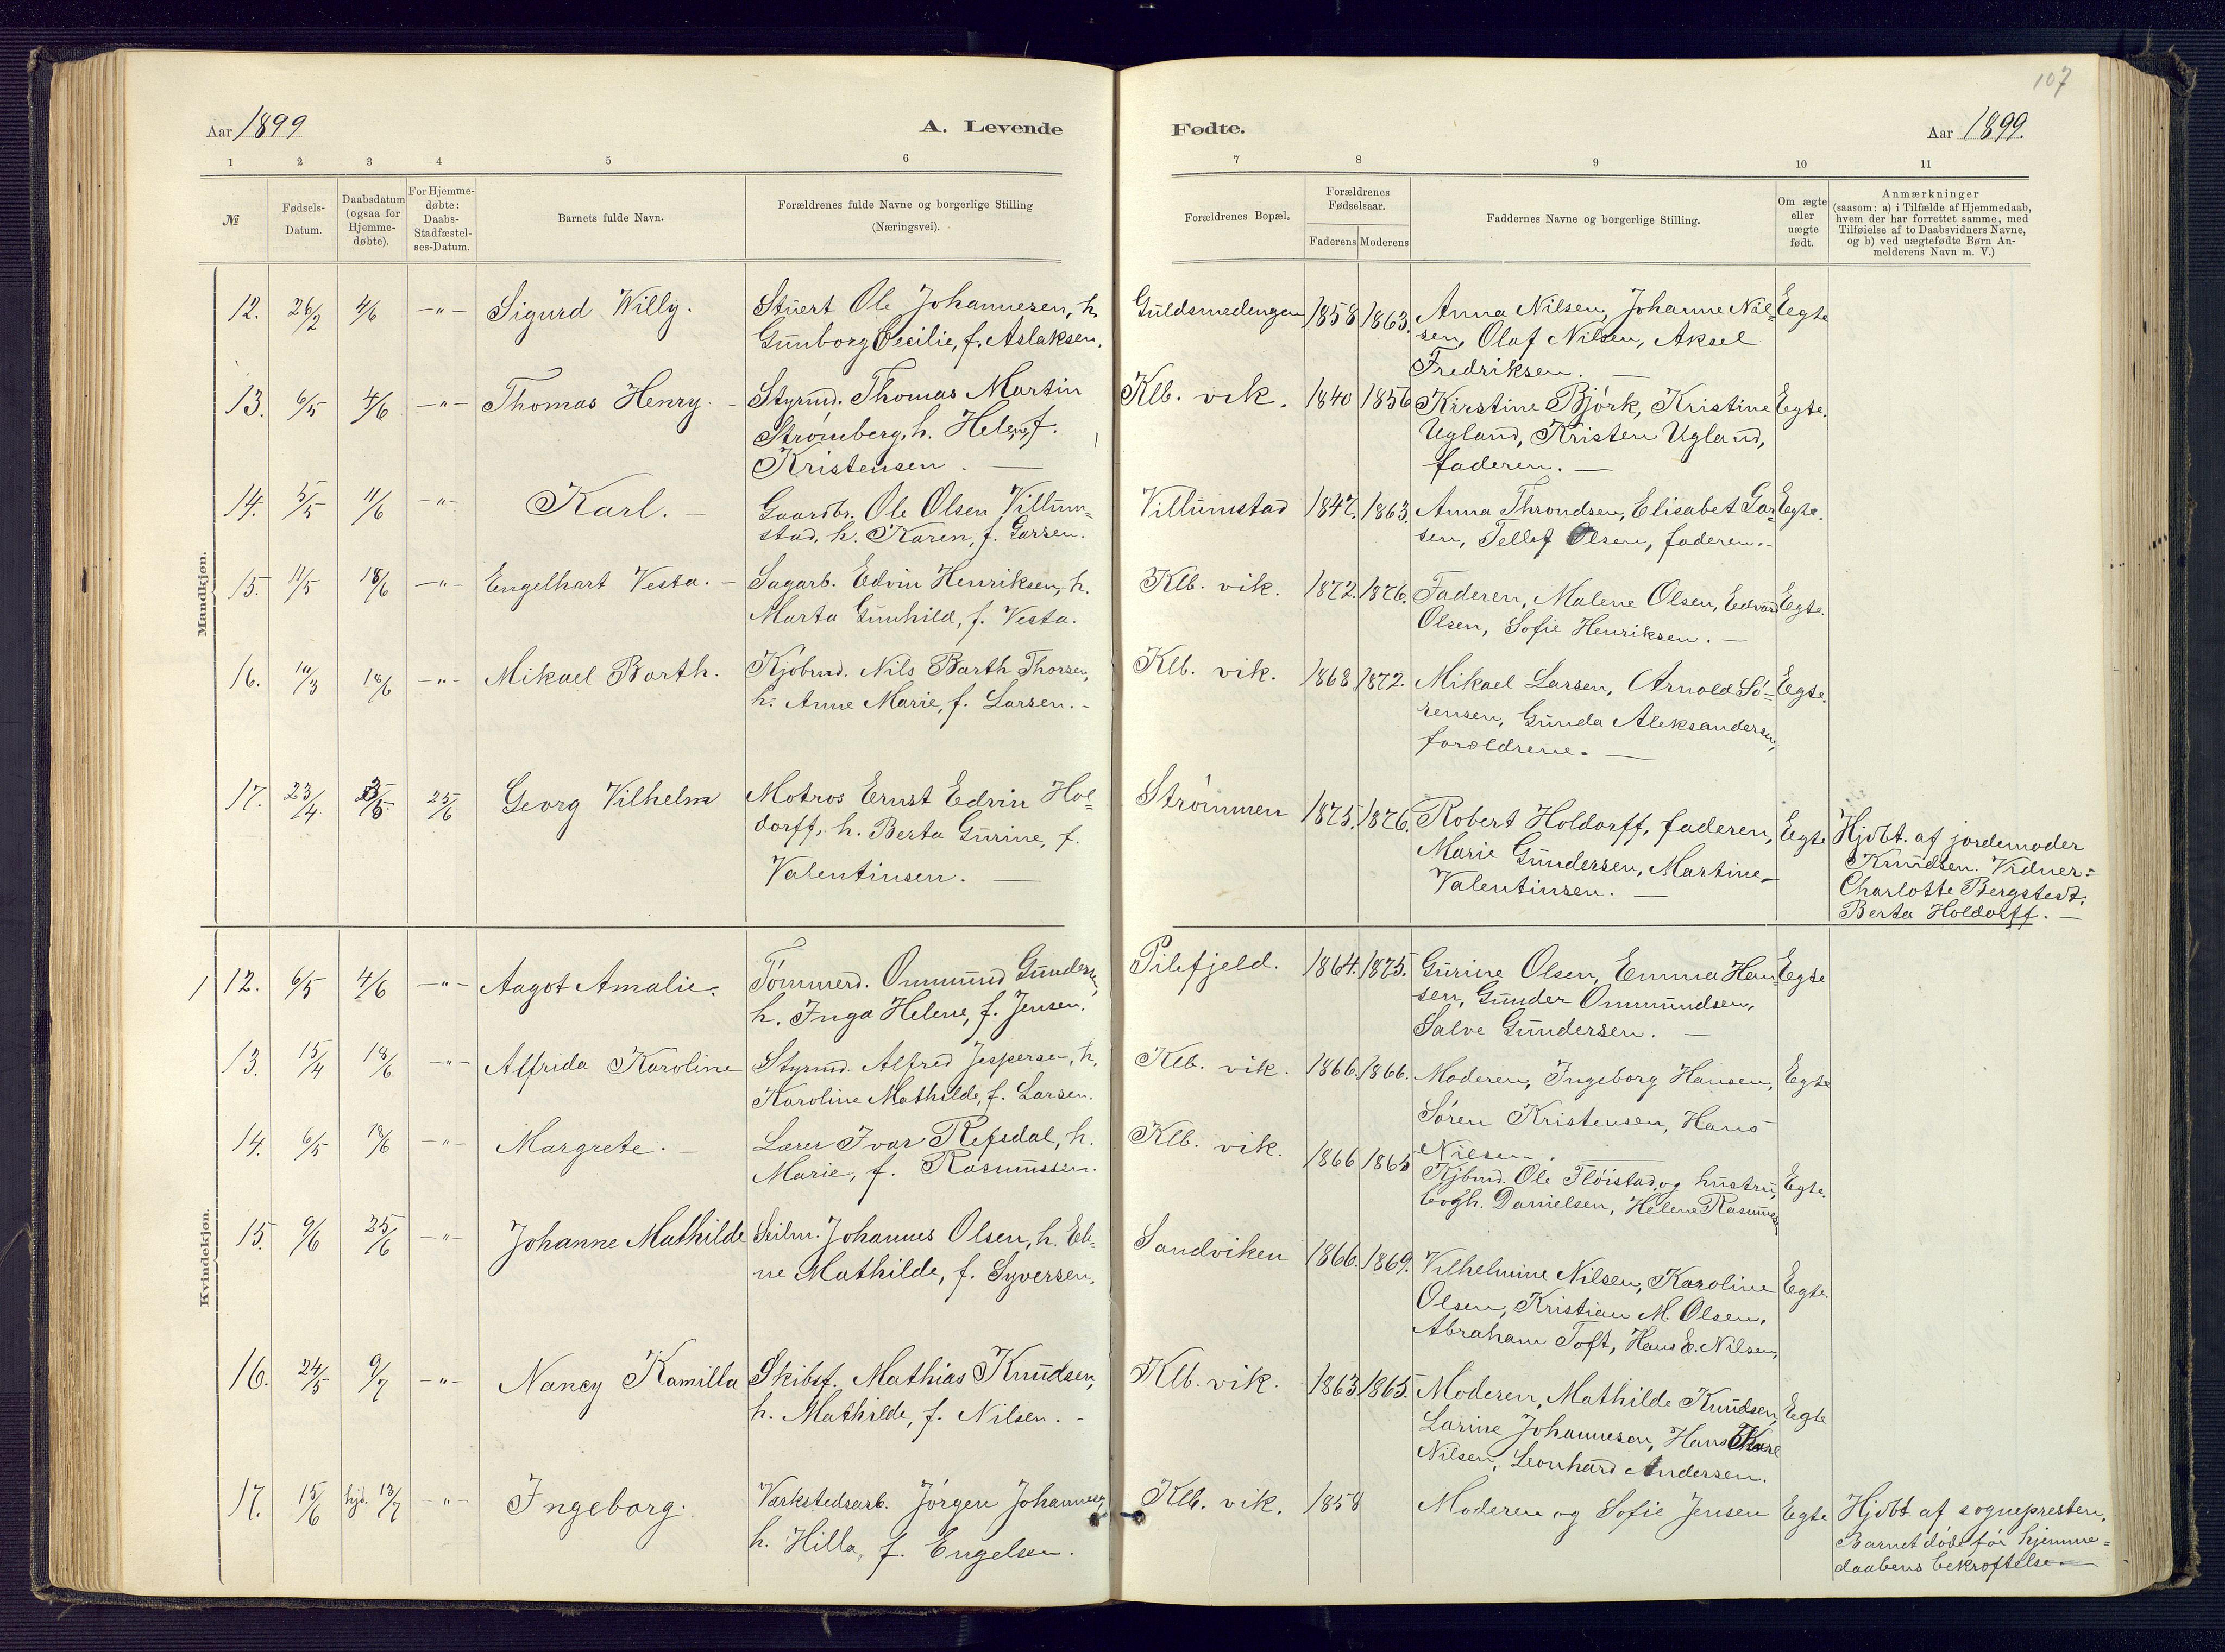 107
Aar 1899
A. Levende
Fødte.
Aar 1899.
1 2 3 4 5 6 7 8 9 10 11
№
Fødsels-
Datum.
Daabsdatum
(ogsaa for
Hjemme-
døbte).
For Hjemme-
døbte:
Daabs-
Stadfæstel-
ses-Datum.
Barnets fulde Navn.
Forældrenes fulde Navne og borgerlige Stilling
(Næringsvei).
Forældrenes Bopæl.
Forældrenes
Fødselsaar.
Faderens Moderens
Faddernes Navne og borgerlige Stilling.
Om ægte
eller
uægte
født.
Anmærkninger
(saasom: a) i Tilfælde af Hjemmedaab,
hvem der har forrettet samme, med
Tilføielse af to Daabsvidners Navne,
og b) ved uægtefødte Børn An-
melderens Navn m. V.)
Mandkjøn.
12. 26/2 4/6 -"- Sigurd Willy.
Stuert Ole Johannesen, h.
Gunborg Cecilie, f. Aslaksen.
Guldsmedengen 1858 1863.
Anna Nilsen, Johanne Nil=
sen, Olaf Nilsen, Aksel
Fredriksen. —
Egte
13. 6/5 4/6 -"- Thomas Henry. -
Styrmd. Thomas Martin
Strømberg, h. Helene, f.
Kristensen. —
Klb. vik. 1840 1856
Kirstine Bjørk, Kristine
Ugland, Kristen Ugland,
faderen. —
Egte.
14. 5/5 11/6 -"- Karl. -
Gaardbr. Ole Olsen Villum=
stad, h. Karen, f. Garsen.
Villumstad 1847. 1863.
Anna Throndsen, Elisabet Gar=
sen, Tellef Olsen, faderen.-
Egte.
15. 11/5 18/6 -"- Engelhart Vesta. -
Sagarb. Edvin Henriksen, h.
Marta Gunhild, f. Vesta.
Klb. vik. 1872. 1876.
Faderen, Malene Olsen, Edvard
Olsen, Sofie Henriksen. —
Egte.
16. /3 18/6 -"- Mikael Barth.
Kjøbmd. Nils Barth Thorsen,
h. Anne Marie, f. Larsen. -
Klb. vik. 1868 1872.
Mikael Larsen, Arnold Sø=
rensen, Gunda Aleksandersen,
forældrene. —
Egte.
17. 23/4 25/6 Georg Vilhelm
Motros Ernst Edvin Hol=
dorff, h. Berta Gurine, f.
Valentinsen. —
Strømmen 1875. 1876.
Robert Holdorff, faderen,
Marie Gundersen, Martine
Valentinsen. —
Egte
Hjdbt. af jordemoder
Knudsen. Vidner:
Charlotte Bergstedt.
Berta Holdorff. —
Kvindekjøn.
12. 6/5 4/6 -"- Aagot Amalie.
Tømmerd. Ommund Gundersen,
h. Inga Helene, f. Jensen.
Pilefjeld. 1864. 1875.
Gurine Olsen, Emma Han=
sen, Gunder Ommundsen,
Salve Gundersen. —
Egte
13. 15/4 18/6 -"- Alfrida Karoline
Styrmd. Alfred Jespersen, h.
Karoline Mathilde, f. Larsen.
Klb. vik. 1866. 1866.
Moderen, Ingeborg Hansen,
Søren Kristensen, Hans
Nilsen.
Egte
14. 6/5 18/6 -"- Margrete. -
Lærer Ivar Refsdal, h.
Marie, f. Rasmussen.
Klb. vik. 1866 1865
Kjbmd. Ole Fløistad og hustru,
bogh. Danielsen, Helene Rasmussen
Egte.
15. 9/6 25/6 -"- Johanne Mathilde
Seilm. Johannes Olsen, h. El=
ne Mathilde, f. Syversen,
Sandviken 1866. 1869.
Vilhelmine Nilsen, Karoline
Olsen, Kristian M. Olsen,
Abraham Toft, Hans E. Nilsen,
Egte.
16. 24/5 9/7 -"- Nancy Kamilla
Skibsf. Mathias Knudsen,
h. Mathilde, f. Nilsen. -
Klb. vik. 1863 1865.
Moderen, Mathilde Knudsen,
Larine Johannesen, Hans Karl
Nilsen, Leonhard Andersen.
Egte
17. 15/6 hjd. 13/7 -"- Ingeborg.
Værkstedsarb. Jørgen Johannesen,
h. Hilla, f. Engelsen.
Klb. vik. 1858
Moderen og Sofie Jensen
Egte
Hjdbt. af sognepresten,
Barnet døde før hjemme=
daabens bekræftelse